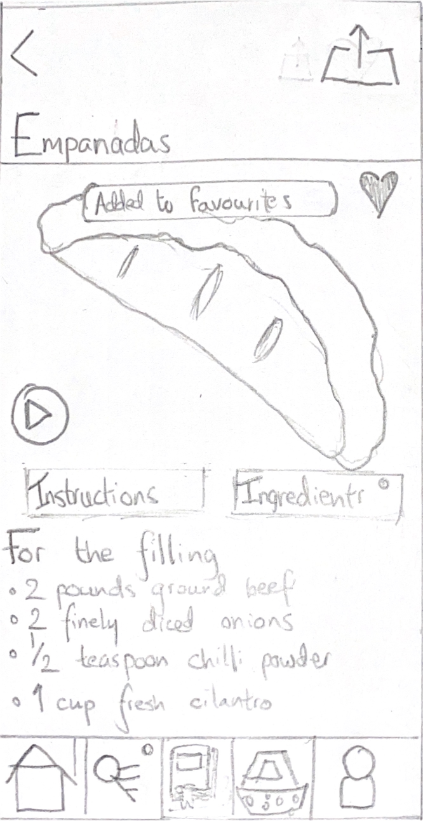 Empanadas
Added to favourites
Instructions
Ingredients
For the filling
• 2 pounds ground beef
• 2 finely diced onions
• 1/2 teaspoon chilli powder
• 1 cup fresh cilantro